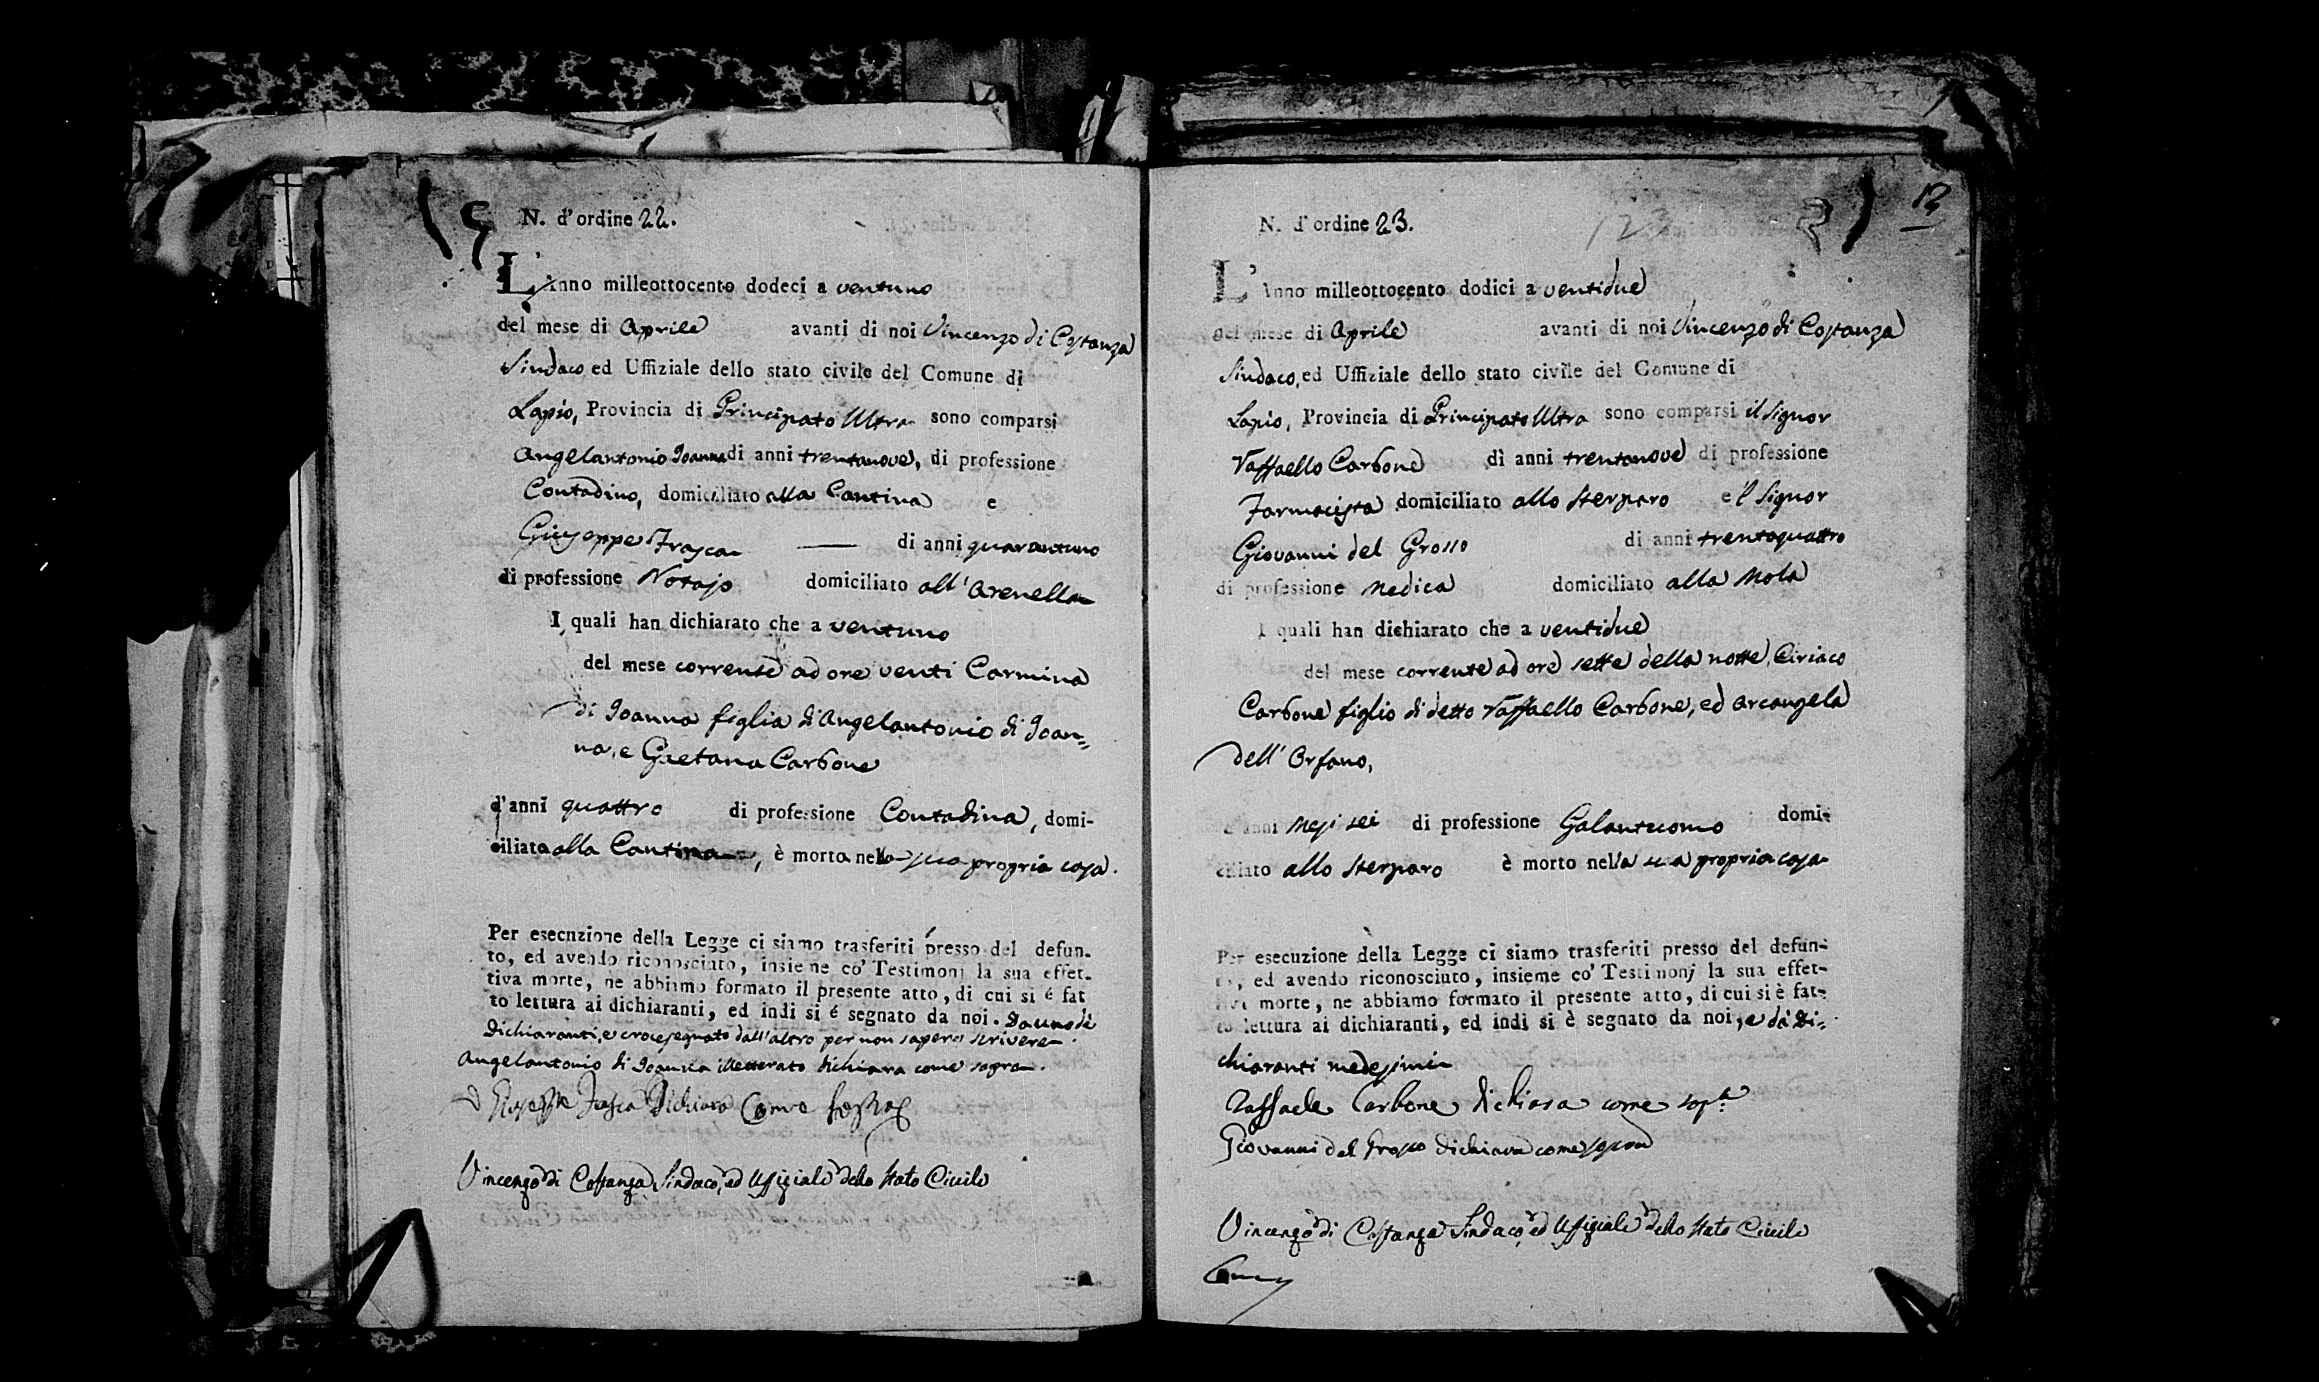 N. d'ordine 22.
L'Anno milleottocento dodeci a ventuno
del mese di Aprile avanti di noi Vincenzo di Costanza
Sindaco ed Uffiziale dello stato civile del Comune di
Lapio, Provincia di Principato Ultra sono comparsi
Angelantonio Joanna di anni trentanove, di professione
Contadino, domiciliato alla Cantina e
Giuseppe Frasca — di anni quarantuno
di professione Notajo domiciliato all'Arenella
I quali han dichiarato che a ventuno
del mese corrente ad ore venti Carmina
di Joanna figlia di Angelantonio di Joan=
na, e Gaetana Carbone
d'anni quattro di professione Contadina, domi-
ciliata alla Cantina, è morta nella sua propria casa.
Per esecuzione della Legge ci siamo trasferiti presso del defun-
to, ed avendo riconosciuto, insieme co' Testimonj la sua effet-
tiva morte, ne abbiamo formato il presente atto, di cui si é fat
to lettura ai dichiaranti, ed indi si é segnato da noi. Da uno de'
Dichiaranti, e crocesegnato dall'altro per non sapere scrivere
Angelantonio di Joanna illetterato dichiara come sopra.
Giuseppe Frasca Dichiara Come Sopra
Vincenzo di Costanza Sindaco, ed Uffiziale dello Stato Civile
12
123
N. d'ordine 23.
L'Anno milleottocento dodici a ventidue
del mese di Aprile avanti di noi Vincenzo di Costanza
Sindaco, ed Uffiziale dello stato civile del Comune di
Lapio, Provincia di Principato Ultra sono comparsi il Signor
Raffaello Carbone di anni trentanove di professione
Farmacista domiciliato allo Sterparo e 'l Signor
Giovanni del Grosso di anni trentaquattro
di professione Medica domiciliato alla Mola
I quali han dichiarato che a ventidue
del mese corrente ad ore sette della notte, Ciriaco
Carbone figlio di detto Raffaello Carbone, ed Arcangela
dell'Orfano,
d'anni Mesi sei di professione Galantuomo domi-
ciliato allo Sterparo è morto nella sua propria casa
Per esecuzione della Legge ci siamo trasferiti presso del defun-
to, ed avendo riconosciuto, insieme co' Testimonj la sua effet-
tiva morte, ne abbiamo formato il presente atto, di cui si è fat-
to lettura ai dichiaranti, ed indi si è segnato da noi, e da' Di=
chiaranti medesimi
Raffaele Carbone dichiara come sopra
Giovanni del Grosso dichiara come sopra
Vincenzo di Costanza Sindaco, ed Uffiziale dello Stato Civile